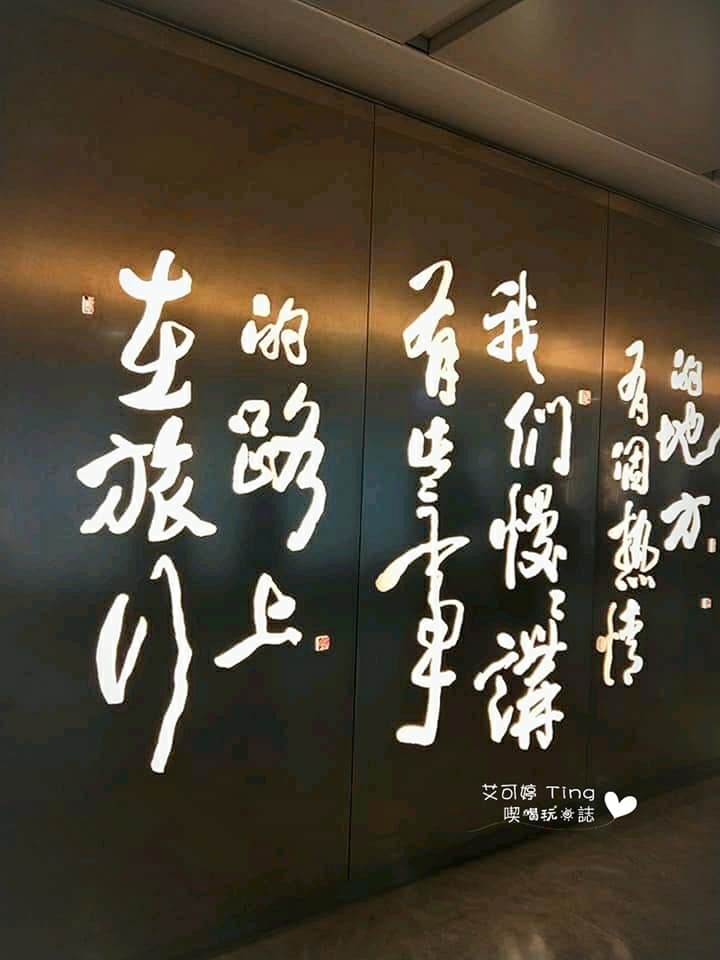 在旅行
的路上
有些事
我们慢〻講
有個热情
的地方
艾可婷 Ting
喫喝玩樂誌